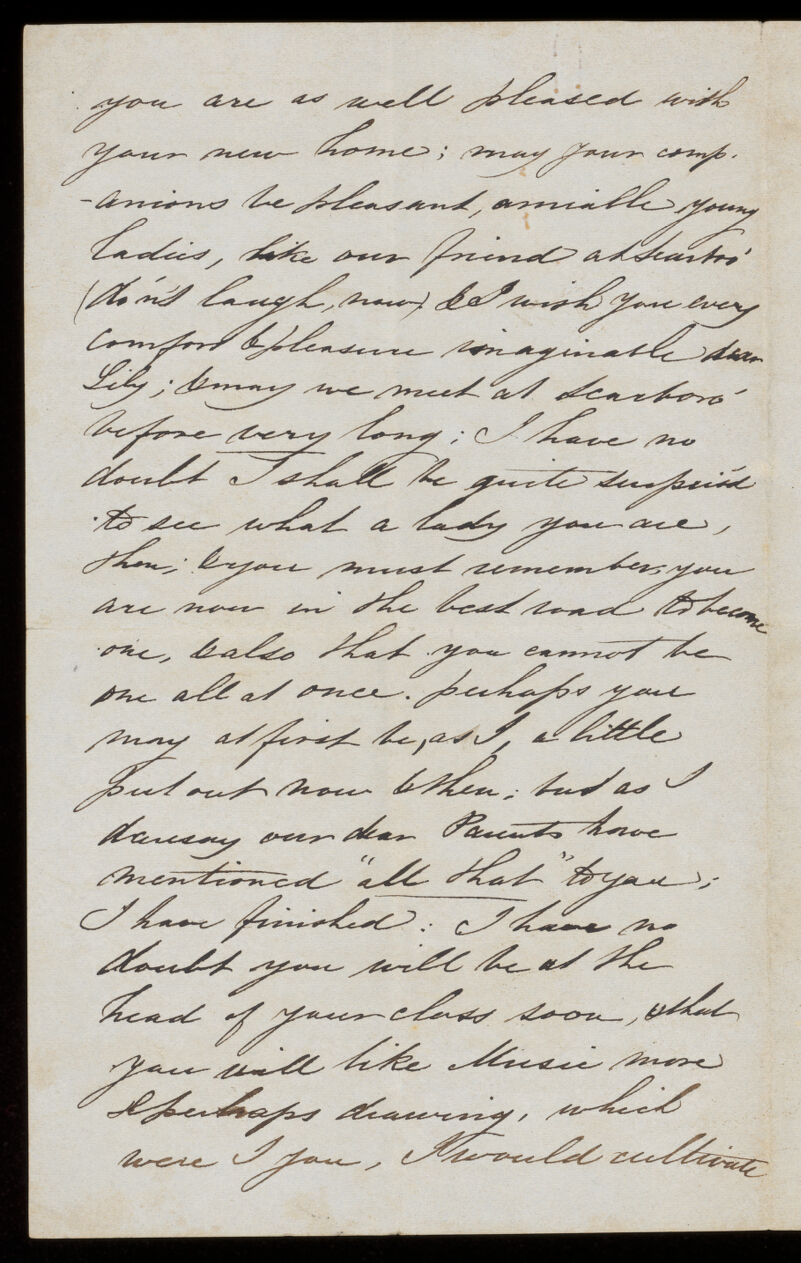 you are as well pleased with
your new home; may your comp.
-anions be pleasant, amiable young
ladies, like our friend at Scarbro'
(do'nt laugh, now) & I wish you every
comfort & pleasure imaginable dear
Lily; & may we meet at Scarboro'
before very long; I have no
doubt I shall be quite surpris'd
to see what a lady you are,
then; & you must remember, you
are now in the best road to become
one, & also that you cannot be
one all at once. perhaps you
may at first be, as I, a little
put out now & then; but as I
daresay our dear Parents have
mentioned "all that" to you;
I have finished: I have no
doubt you will be at the
head of your class soon, & that
you will like Music more
& perhaps drawing, which
were I you, I would cultivate